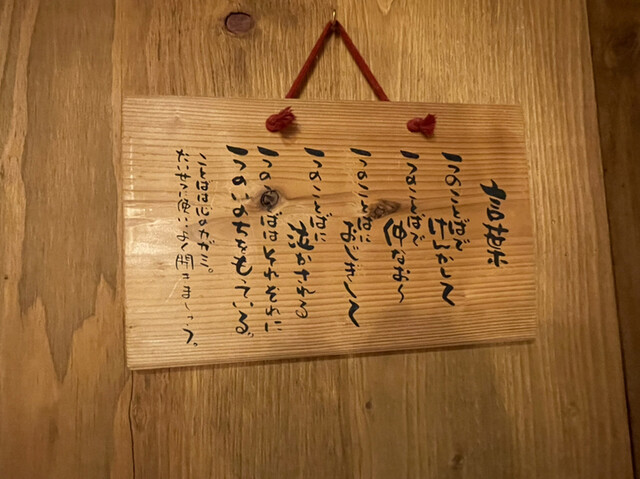 言葉
一つのことばで けんかして
一つのことばで 仲なおり
一つのことばに おじぎして
一つのことばに 泣かされる
一つのことばはそれぞれに
一つのいのちをもっている
ことばは心のかがみ。
たいせつに使い、よく聞きましょう。